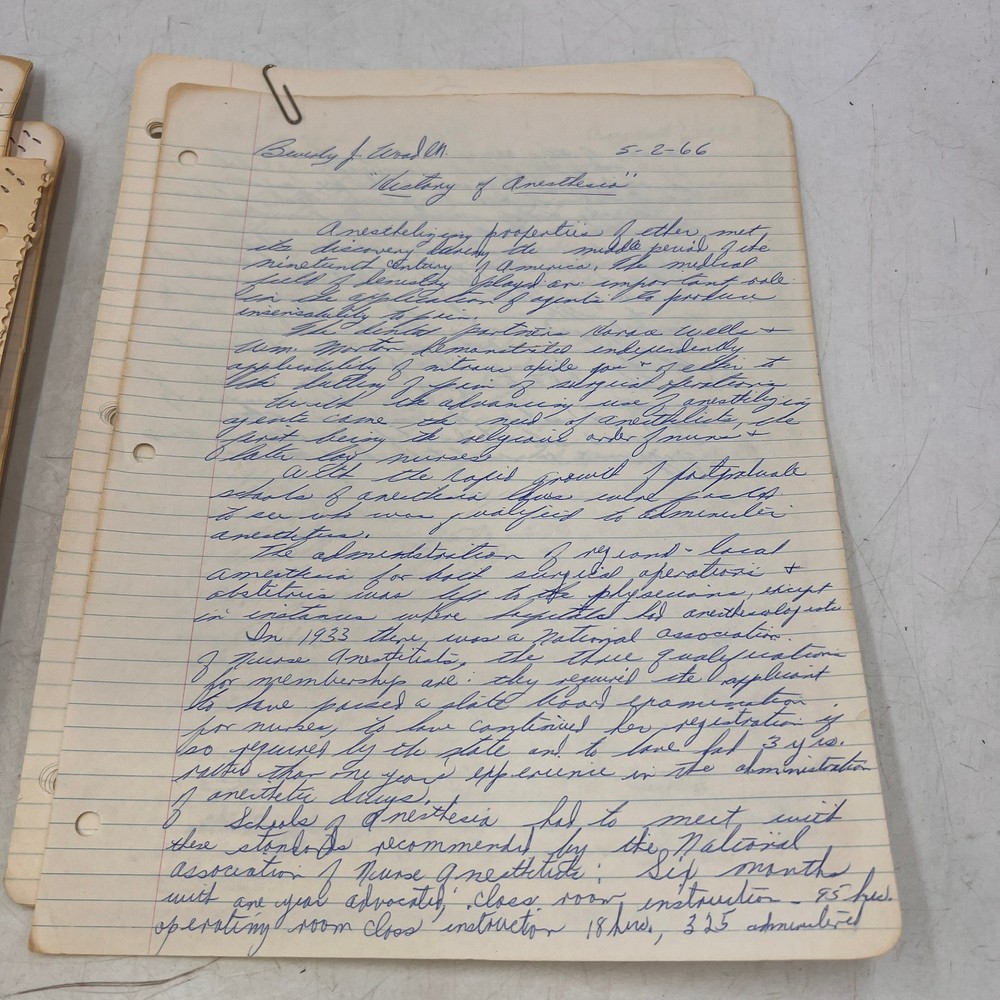 Beverly J. Wood 5-2-66
"History of Anesthesia"
Anesthetizing properties of ether met
its discovery during the middle period of the
nineteenth century of America. The medical
field of denistry played an important role
in the application of agents to produce
insensability to pain.
The dental partners Horace Wells +
Wm. Morton demonstrated independently
applicability of nitrous oxide gas + of ether to
the dulling of pain of surgical operations
With the advancing use of anesthetizing
agents came the need of anesthetists, the
first being the religious order of nuns +
later lay nurses
With the rapid growth of postgraduate
schools of anesthesia laws were passed
to see who was qualified to administer
anesthetics.
The administration of regional - local
anesthesia for both surgical operations +
obstetrics was left to the physicians, except
in instances where hospitals had anesthesologists
In 1933 there was a National association
of Nurse Anesthetists, the three qualifications
for membership are: they required the applicant
to have passed a state board examination
for nurses, to have continued her registration if
so required by the state and to have had 3 yrs.
rather than one years experience in the administration
of anesthetic drugs.
Schools of Anesthesia had to meet with
these standards recommended by the National
association of Nurse Anesthetists: Six months
with one year advocated, class room instruction - 95 hrs.
operating room class instruction 18 hrs., 325 administered